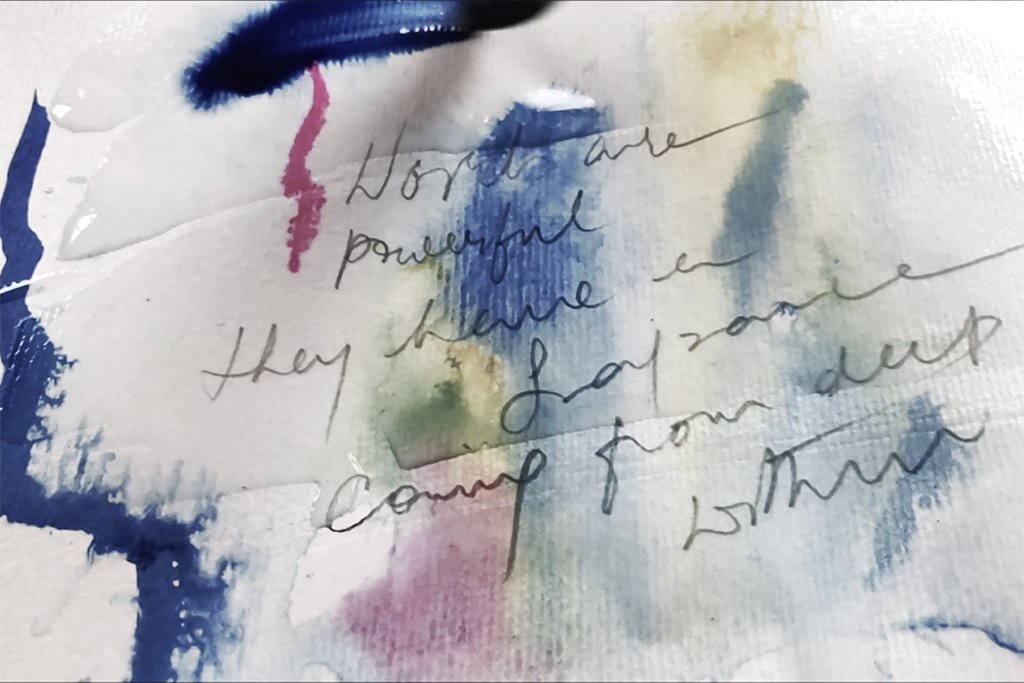 Words are
powerful
they have a
fragrance
coming from deep
within